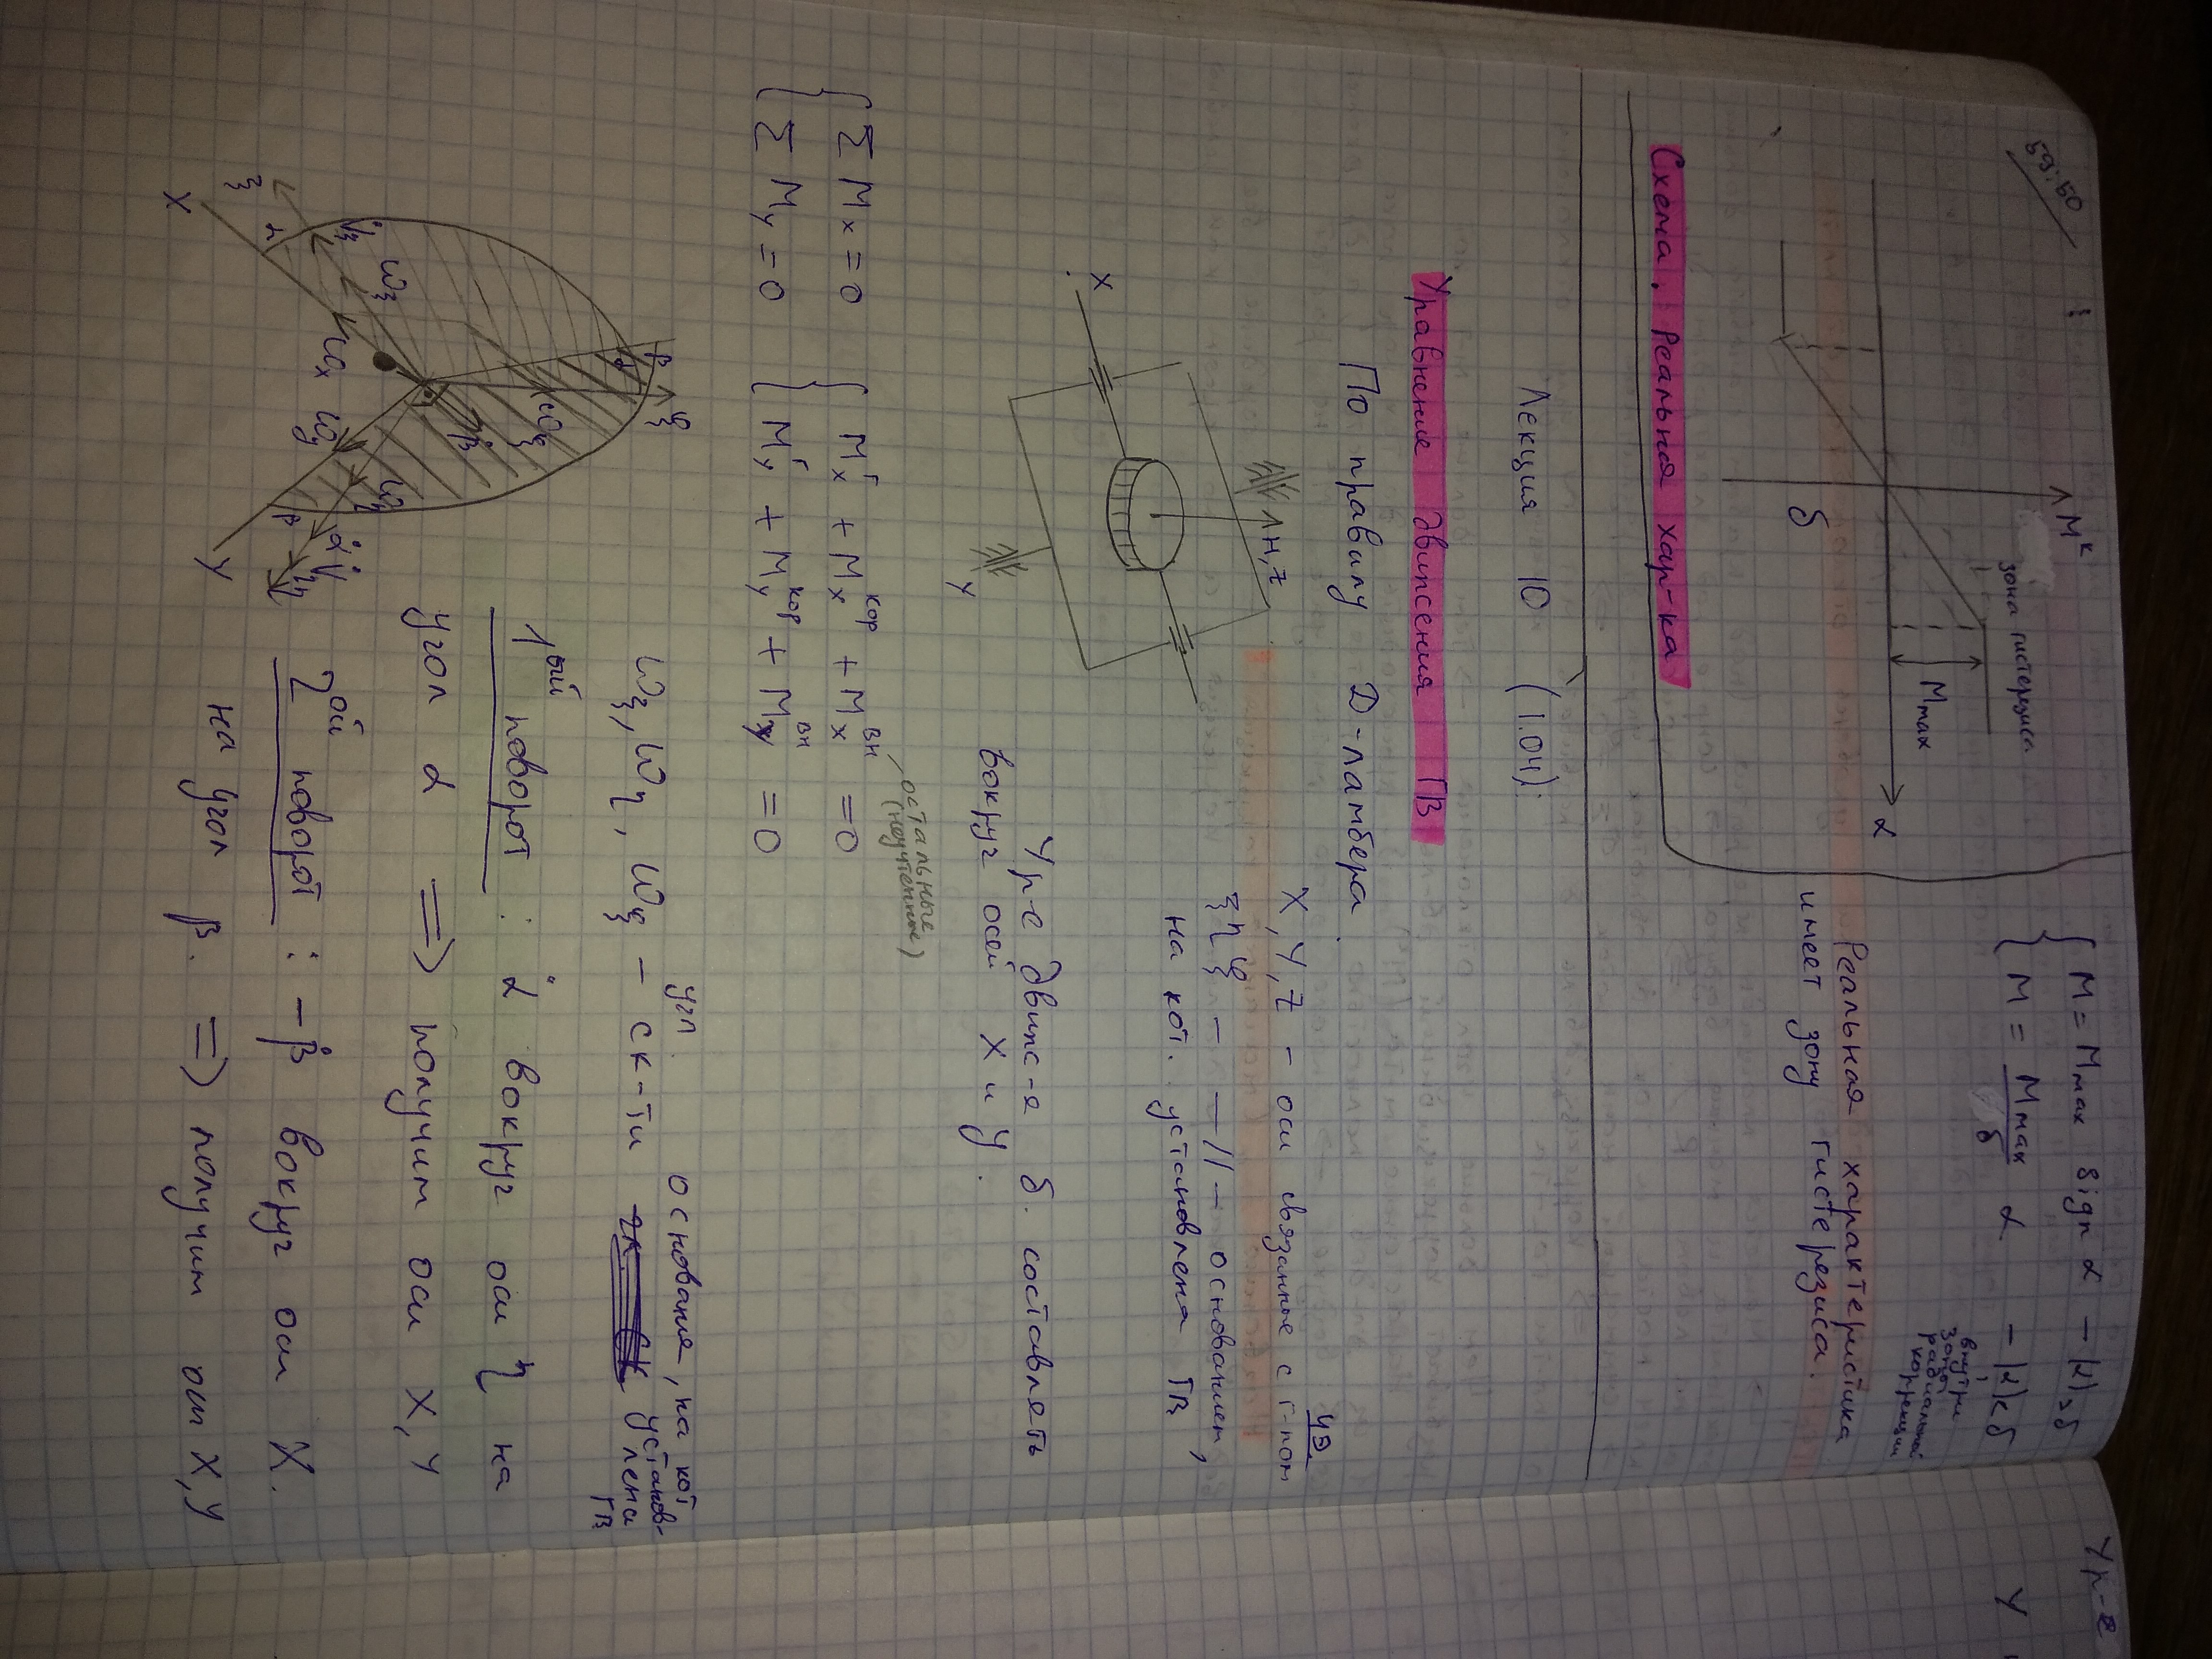 59:50
M^к
зона гистерезиса
M max
α
δ
{ M = M max sign α – |α|>δ
{ M = M max / δ α – |α|<δ
внутри зоны радиальной коррекции
Реальная характеристика
имеет зону гистерезиса.
Схема. Реальная хар-ка
Лекция 10 (1.04):
Уравнение движения ГВ
По правилу Д-ламбера.
H, Z
X
Y
ЧЭ
X, Y, Z – оси связанные с г-пом
ξ η ζ – –//– основанием,
на кот. установлена ГВ
Ур-е движ-я б. составлять
вокруг осей X и Y.
{ Σ Mx = 0
{ Σ My = 0
{ Mx^г + Mx^кор + Mx^вн = 0
{ My^г + My^кор + My^вн = 0
остальные
(неучтенные)
ωξ, ωη, ωζ – угл. ск-ти основания, на кот установлена ГВ
1ый поворот: α̇ вокруг оси η на
угол α ⟹ получим оси X, Y
2ой поворот: –β̇ вокруг оси X.
на угол β. ⟹ получим оси X, Y
ζ
β
ωζ
β̇
ξ
X
ωξ
ωx
ωy
ωη
α̇
η
Y
Ур-е
Y